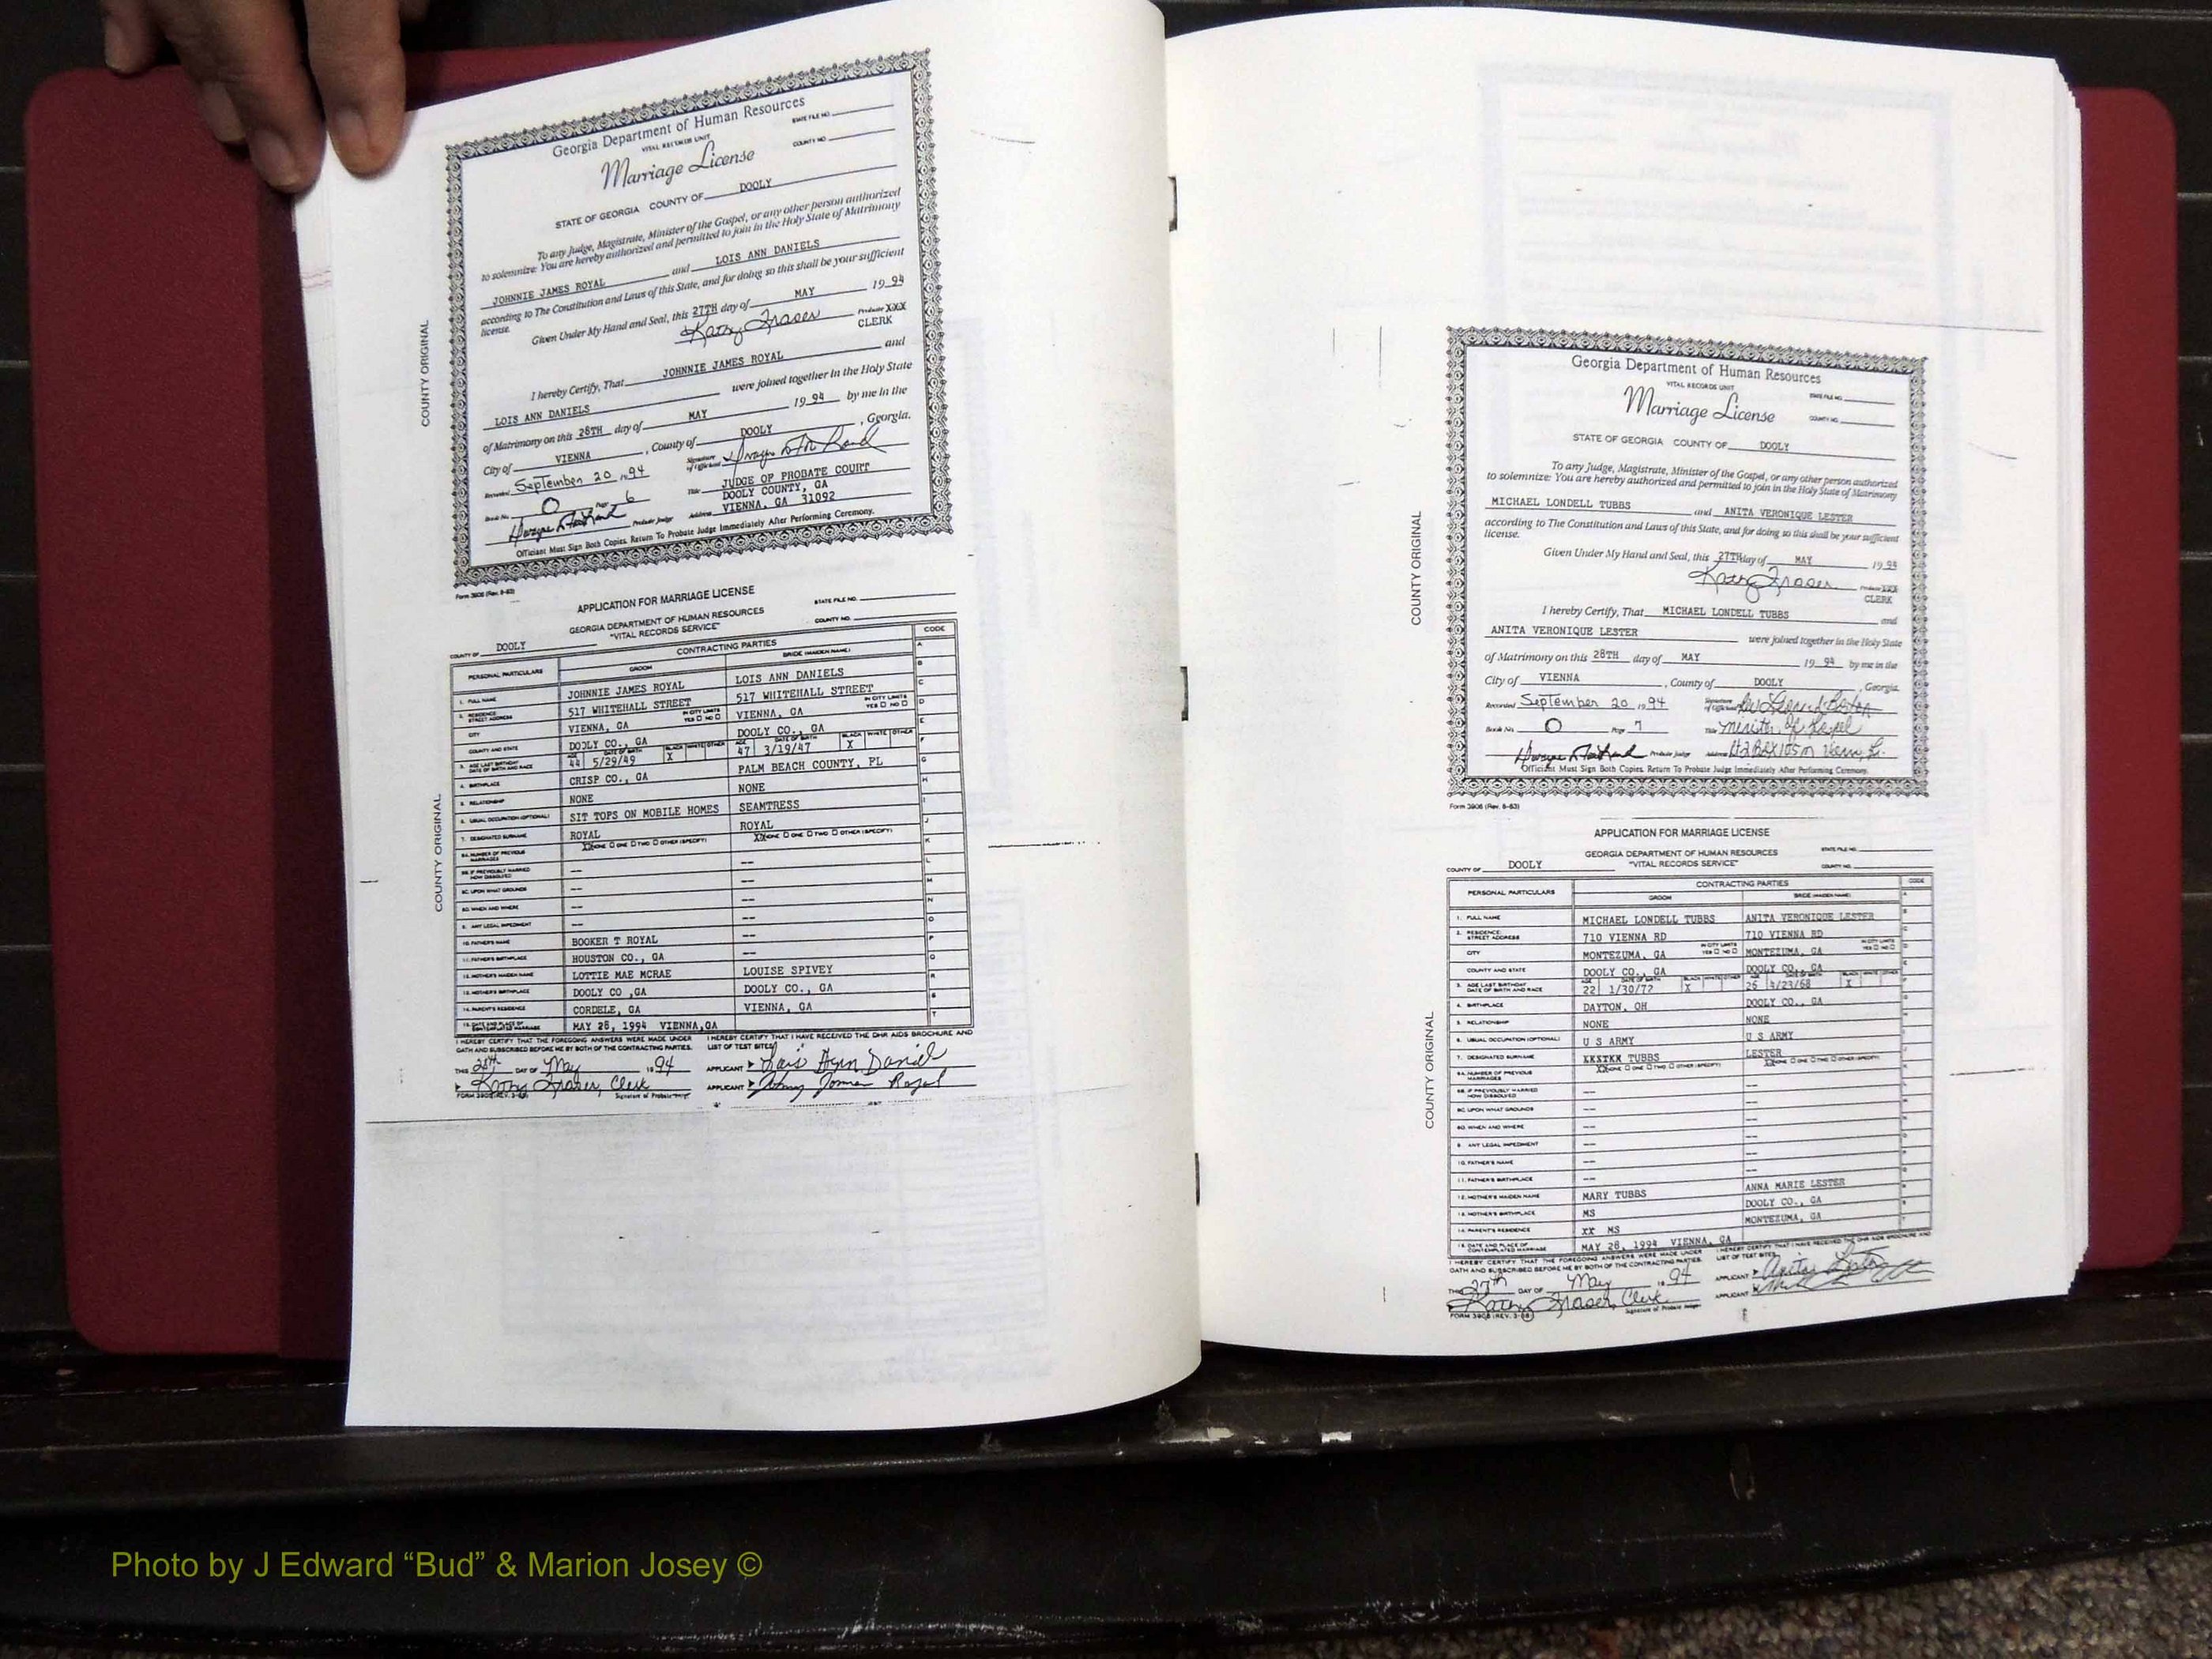 Georgia Department of Human Resources
VITAL RECORDS UNIT
STATE FILE NO.
Marriage License
COUNTY NO.
STATE OF GEORGIA COUNTY OF DOOLY
To any Judge, Magistrate, Minister of the Gospel, or any other person authorized
to solemnize: You are hereby authorized and permitted to join in the Holy State of Matrimony
JOHNNIE JAMES ROYAL and LOIS ANN DANIELS
according to The Constitution and Laws of this State, and for doing so this shall be your sufficient
license.
Given Under My Hand and Seal, this 27TH day of MAY 19 94
Kathy Fraser Probate XXX
CLERK
I hereby Certify, That JOHNNIE JAMES ROYAL and
LOIS ANN DANIELS were joined together in the Holy State
of Matrimony on this 28TH day of MAY 19 94 by me in the
City of VIENNA, County of DOOLY, Georgia.
Recorded September 20 1994 Signature of Official
Title JUDGE OF PROBATE COURT
DOOLY COUNTY, GA
Book No. O Page 6
Probate Judge Address VIENNA, GA 31092
Officiant Must Sign Both Copies. Return To Probate Judge Immediately After Performing Ceremony.
COUNTY ORIGINAL
Form 3906 (Rev. 8-83)
APPLICATION FOR MARRIAGE LICENSE
GEORGIA DEPARTMENT OF HUMAN RESOURCES
"VITAL RECORDS SERVICE"
STATE FILE NO.
COUNTY NO.
COUNTY OF DOOLY
PERSONAL PARTICULARS CONTRACTING PARTIES CODE
GROOM BRIDE (MAIDEN NAME)
1. FULL NAME JOHNNIE JAMES ROYAL LOIS ANN DANIELS
2. RESIDENCE STREET ADDRESS 517 WHITEHALL STREET 517 WHITEHALL STREET
CITY VIENNA, GA IN CITY LIMITS YES NO VIENNA, GA IN CITY LIMITS YES NO
COUNTY AND STATE DOOLY CO., GA DOOLY CO., GA
3. AGE LAST BIRTHDAY DATE OF BIRTH AND RACE 44 5/29/49 BLACK X WHITE OTHER 47 3/19/47 BLACK X WHITE OTHER
4. BIRTHPLACE CRISP CO., GA PALM BEACH COUNTY, FL
5. RELATIONSHIP NONE NONE
6. USUAL OCCUPATION (OPTIONAL) SIT TOPS ON MOBILE HOMES SEAMTRESS
7. DESIGNATED SURNAME ROYAL ROYAL
8A. NUMBER OF PREVIOUS MARRIAGES XX NONE ONE TWO OTHER (SPECIFY) XX NONE ONE TWO OTHER (SPECIFY)
8B. IF PREVIOUSLY MARRIED HOW DISSOLVED -- --
8C. UPON WHAT GROUNDS -- --
8D. WHEN AND WHERE -- --
9. ANY LEGAL IMPEDIMENT -- --
10. FATHER'S NAME BOOKER T ROYAL --
11. FATHER'S BIRTHPLACE HOUSTON CO., GA --
12. MOTHER'S MAIDEN NAME LOTTIE MAE MCRAE LOUISE SPIVEY
13. MOTHER'S BIRTHPLACE DOOLY CO ,GA DOOLY CO., GA
14. PARENT'S RESIDENCE CORDELE, GA VIENNA, GA
15. DATE AND PLACE OF CONTEMPLATED MARRIAGE MAY 28, 1994 VIENNA,GA
I HEREBY CERTIFY THAT THE FOREGOING ANSWERS WERE MADE UNDER
OATH AND SUBSCRIBED BEFORE ME BY BOTH OF THE CONTRACTING PARTIES.
I HEREBY CERTIFY THAT I HAVE RECEIVED THE DHR AIDS BROCHURE AND
LIST OF TEST SITES
THIS DAY OF May 1994 APPLICANT Lois Ann Daniel
Kathy Fraser, Clerk APPLICANT
Signature of Probate Judge
COUNTY ORIGINAL
Georgia Department of Human Resources
VITAL RECORDS UNIT
STATE FILE NO.
Marriage License
COUNTY NO.
STATE OF GEORGIA COUNTY OF DOOLY
To any Judge, Magistrate, Minister of the Gospel, or any other person authorized
to solemnize: You are hereby authorized and permitted to join in the Holy State of Matrimony
MICHAEL LONDELL TUBBS and ANITA VERONIQUE LESTER
according to The Constitution and Laws of this State, and for doing so this shall be your sufficient
license.
Given Under My Hand and Seal, this 27TH day of MAY 19 94
Kathy Fraser Probate XXX
CLERK
I hereby Certify, That MICHAEL LONDELL TUBBS and
ANITA VERONIQUE LESTER were joined together in the Holy State
of Matrimony on this 28TH day of MAY 19 94 by me in the
City of VIENNA, County of DOOLY, Georgia.
Recorded September 20 1994 Signature of Official
Book No. O Page 7 Title Minister of Gospel
Probate Judge Address
Officiant Must Sign Both Copies. Return To Probate Judge Immediately After Performing Ceremony.
COUNTY ORIGINAL
Form 3906 (Rev. 8-83)
APPLICATION FOR MARRIAGE LICENSE
GEORGIA DEPARTMENT OF HUMAN RESOURCES
"VITAL RECORDS SERVICE"
STATE FILE NO.
COUNTY NO.
COUNTY OF DOOLY
PERSONAL PARTICULARS CONTRACTING PARTIES CODE
GROOM BRIDE (MAIDEN NAME)
1. FULL NAME MICHAEL LONDELL TUBBS ANITA VERONIQUE LESTER
2. RESIDENCE STREET ADDRESS 710 VIENNA RD 710 VIENNA RD
CITY MONTEZUMA, GA IN CITY LIMITS YES NO MONTEZUMA, GA IN CITY LIMITS YES NO
COUNTY AND STATE DOOLY CO., GA DOOLY CO., GA
3. AGE LAST BIRTHDAY DATE OF BIRTH AND RACE 22 1/30/72 X 26 4/23/68 X
4. BIRTHPLACE DAYTON, OH DOOLY CO., GA
5. RELATIONSHIP NONE NONE
6. USUAL OCCUPATION (OPTIONAL) U S ARMY U S ARMY
7. DESIGNATED SURNAME TUBBS LESTER
8A. NUMBER OF PREVIOUS MARRIAGES XX NONE ONE TWO OTHER (SPECIFY) XX NONE ONE TWO OTHER (SPECIFY)
8B. IF PREVIOUSLY MARRIED HOW DISSOLVED -- --
8C. UPON WHAT GROUNDS -- --
8D. WHEN AND WHERE -- --
9. ANY LEGAL IMPEDIMENT -- --
10. FATHER'S NAME -- --
11. FATHER'S BIRTHPLACE -- --
12. MOTHER'S MAIDEN NAME MARY TUBBS ANNA MARIE LESTER
13. MOTHER'S BIRTHPLACE MS DOOLY CO., GA
14. PARENT'S RESIDENCE XX MS MONTEZUMA, GA
15. DATE AND PLACE OF CONTEMPLATED MARRIAGE MAY 28, 1994 VIENNA, GA
I HEREBY CERTIFY THAT THE FOREGOING ANSWERS WERE MADE UNDER
OATH AND SUBSCRIBED BEFORE ME BY BOTH OF THE CONTRACTING PARTIES.
I HEREBY CERTIFY THAT I HAVE RECEIVED THE DHR AIDS BROCHURE AND
LIST OF TEST SITES
THIS 27th DAY OF May 1994 APPLICANT Anita
Kathy Fraser, Clerk APPLICANT
Signature of Probate Judge
COUNTY ORIGINAL
Photo by J Edward “Bud” & Marion Josey ©